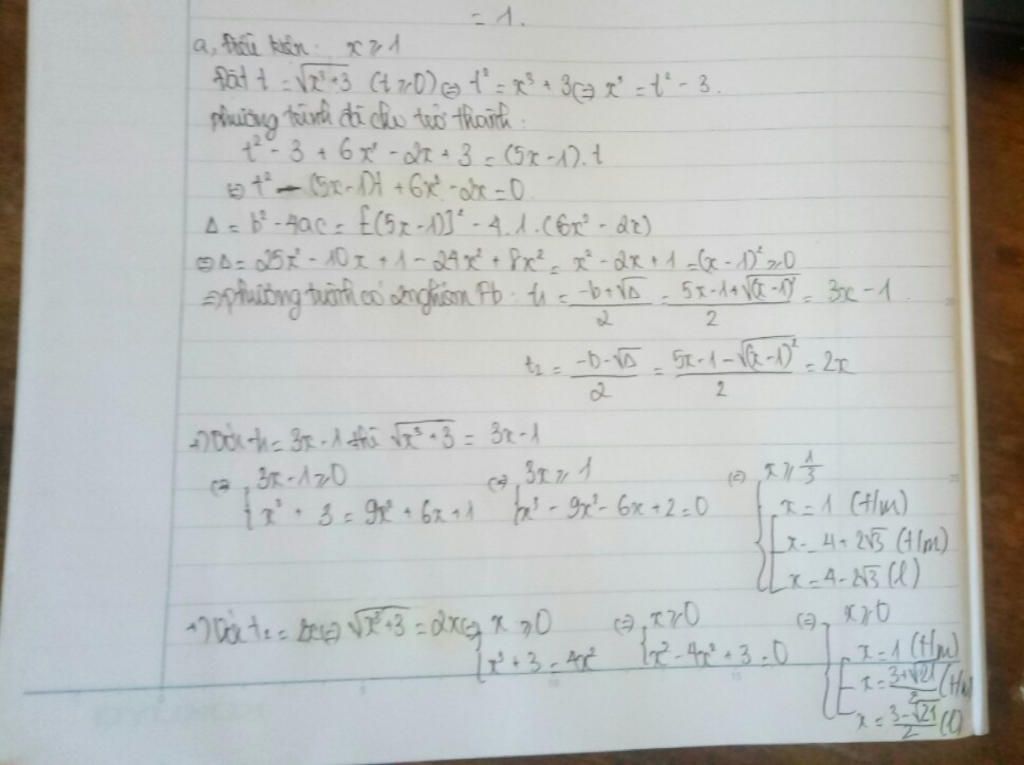 = 1.
a, Điều kiện: x ≥ 1
Đặt t = √(x³+3) (t ≥ 0) ⇔ t² = x³ + 3 ⇔ x³ = t² - 3.
phương trình đã cho trở thành:
t² - 3 + 6x² - 2x + 3 = (5x - 1).t
⇔ t² - (5x - 1)t + 6x² - 2x = 0
Δ = b² - 4ac = [-(5x - 1)]² - 4.1.(6x² - 2x)
⇔ Δ = 25x² - 10x + 1 - 24x² + 8x² = x² - 2x + 1 = (x - 1)² ≥ 0
⇒ phương trình có 2 nghiệm Pb: t₁ = (-b + √Δ)/2 = (5x - 1 + √(x - 1)²)/2 = 3x - 1
t₂ = (-b - √Δ)/2 = (5x - 1 - √(x - 1)²)/2 = 2x
+) Với t₁ = 3x - 1 thì √(x³+3) = 3x - 1
⇔ { 3x - 1 ≥ 0 ⇔ { 3x ≥ 1 ⇔ { x ≥ 1/3
x³ + 3 = 9x² + 6x + 1 x³ - 9x² - 6x + 2 = 0 [ x = 1 (t/m)
x = 4 + 2√3 (t/m)
x = 4 - 2√3 (l)
+) Với t₂ = 2x ⇔ √(x³+3) = 2x ⇔ { x ≥ 0 ⇔ { x ≥ 0 ⇔ { x ≥ 0
x³ + 3 = 4x² x² - 4x² + 3 = 0 [ x = 1 (t/m)
x = (3+√21)/2 (t/m)
x = (3-√21)/2 (l)